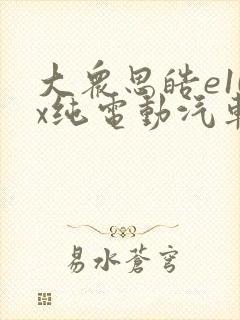 大众思皓e10
x纯電動汽車
易水蒼穹